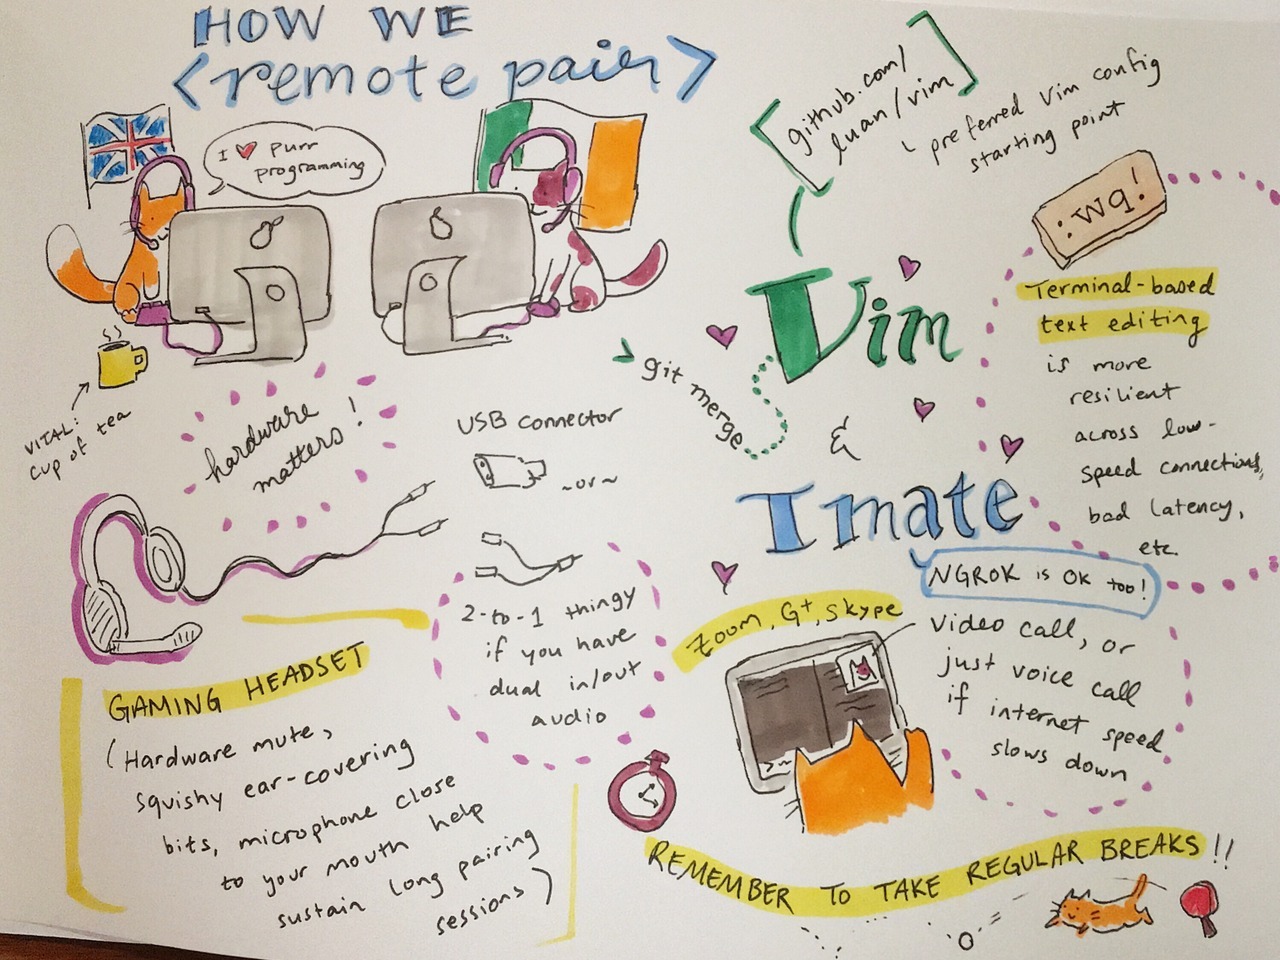 HOW WE
<remote pair>
I ♥ purr
programming
VITAL:
cup of tea
hardware
matters!
USB connector
~or~
2-to-1 thingy
if you have
dual in/out
audio
GAMING HEADSET
(Hardware mute,
squishy ear-covering
bits, microphone close
to your mouth help
sustain long pairing
sessions)
[github.com/
luan/vim]
preferred Vim config
starting point
git merge
Vim
&
Tmate
NGROK is OK too!
:wq!
Terminal-based
text editing
is more
resilient
across low-
speed connections,
bad latency,
etc.
Zoom, G+, Skype
video call, or
just voice call
if internet speed
slows down
>~
REMEMBER TO TAKE REGULAR BREAKS!!